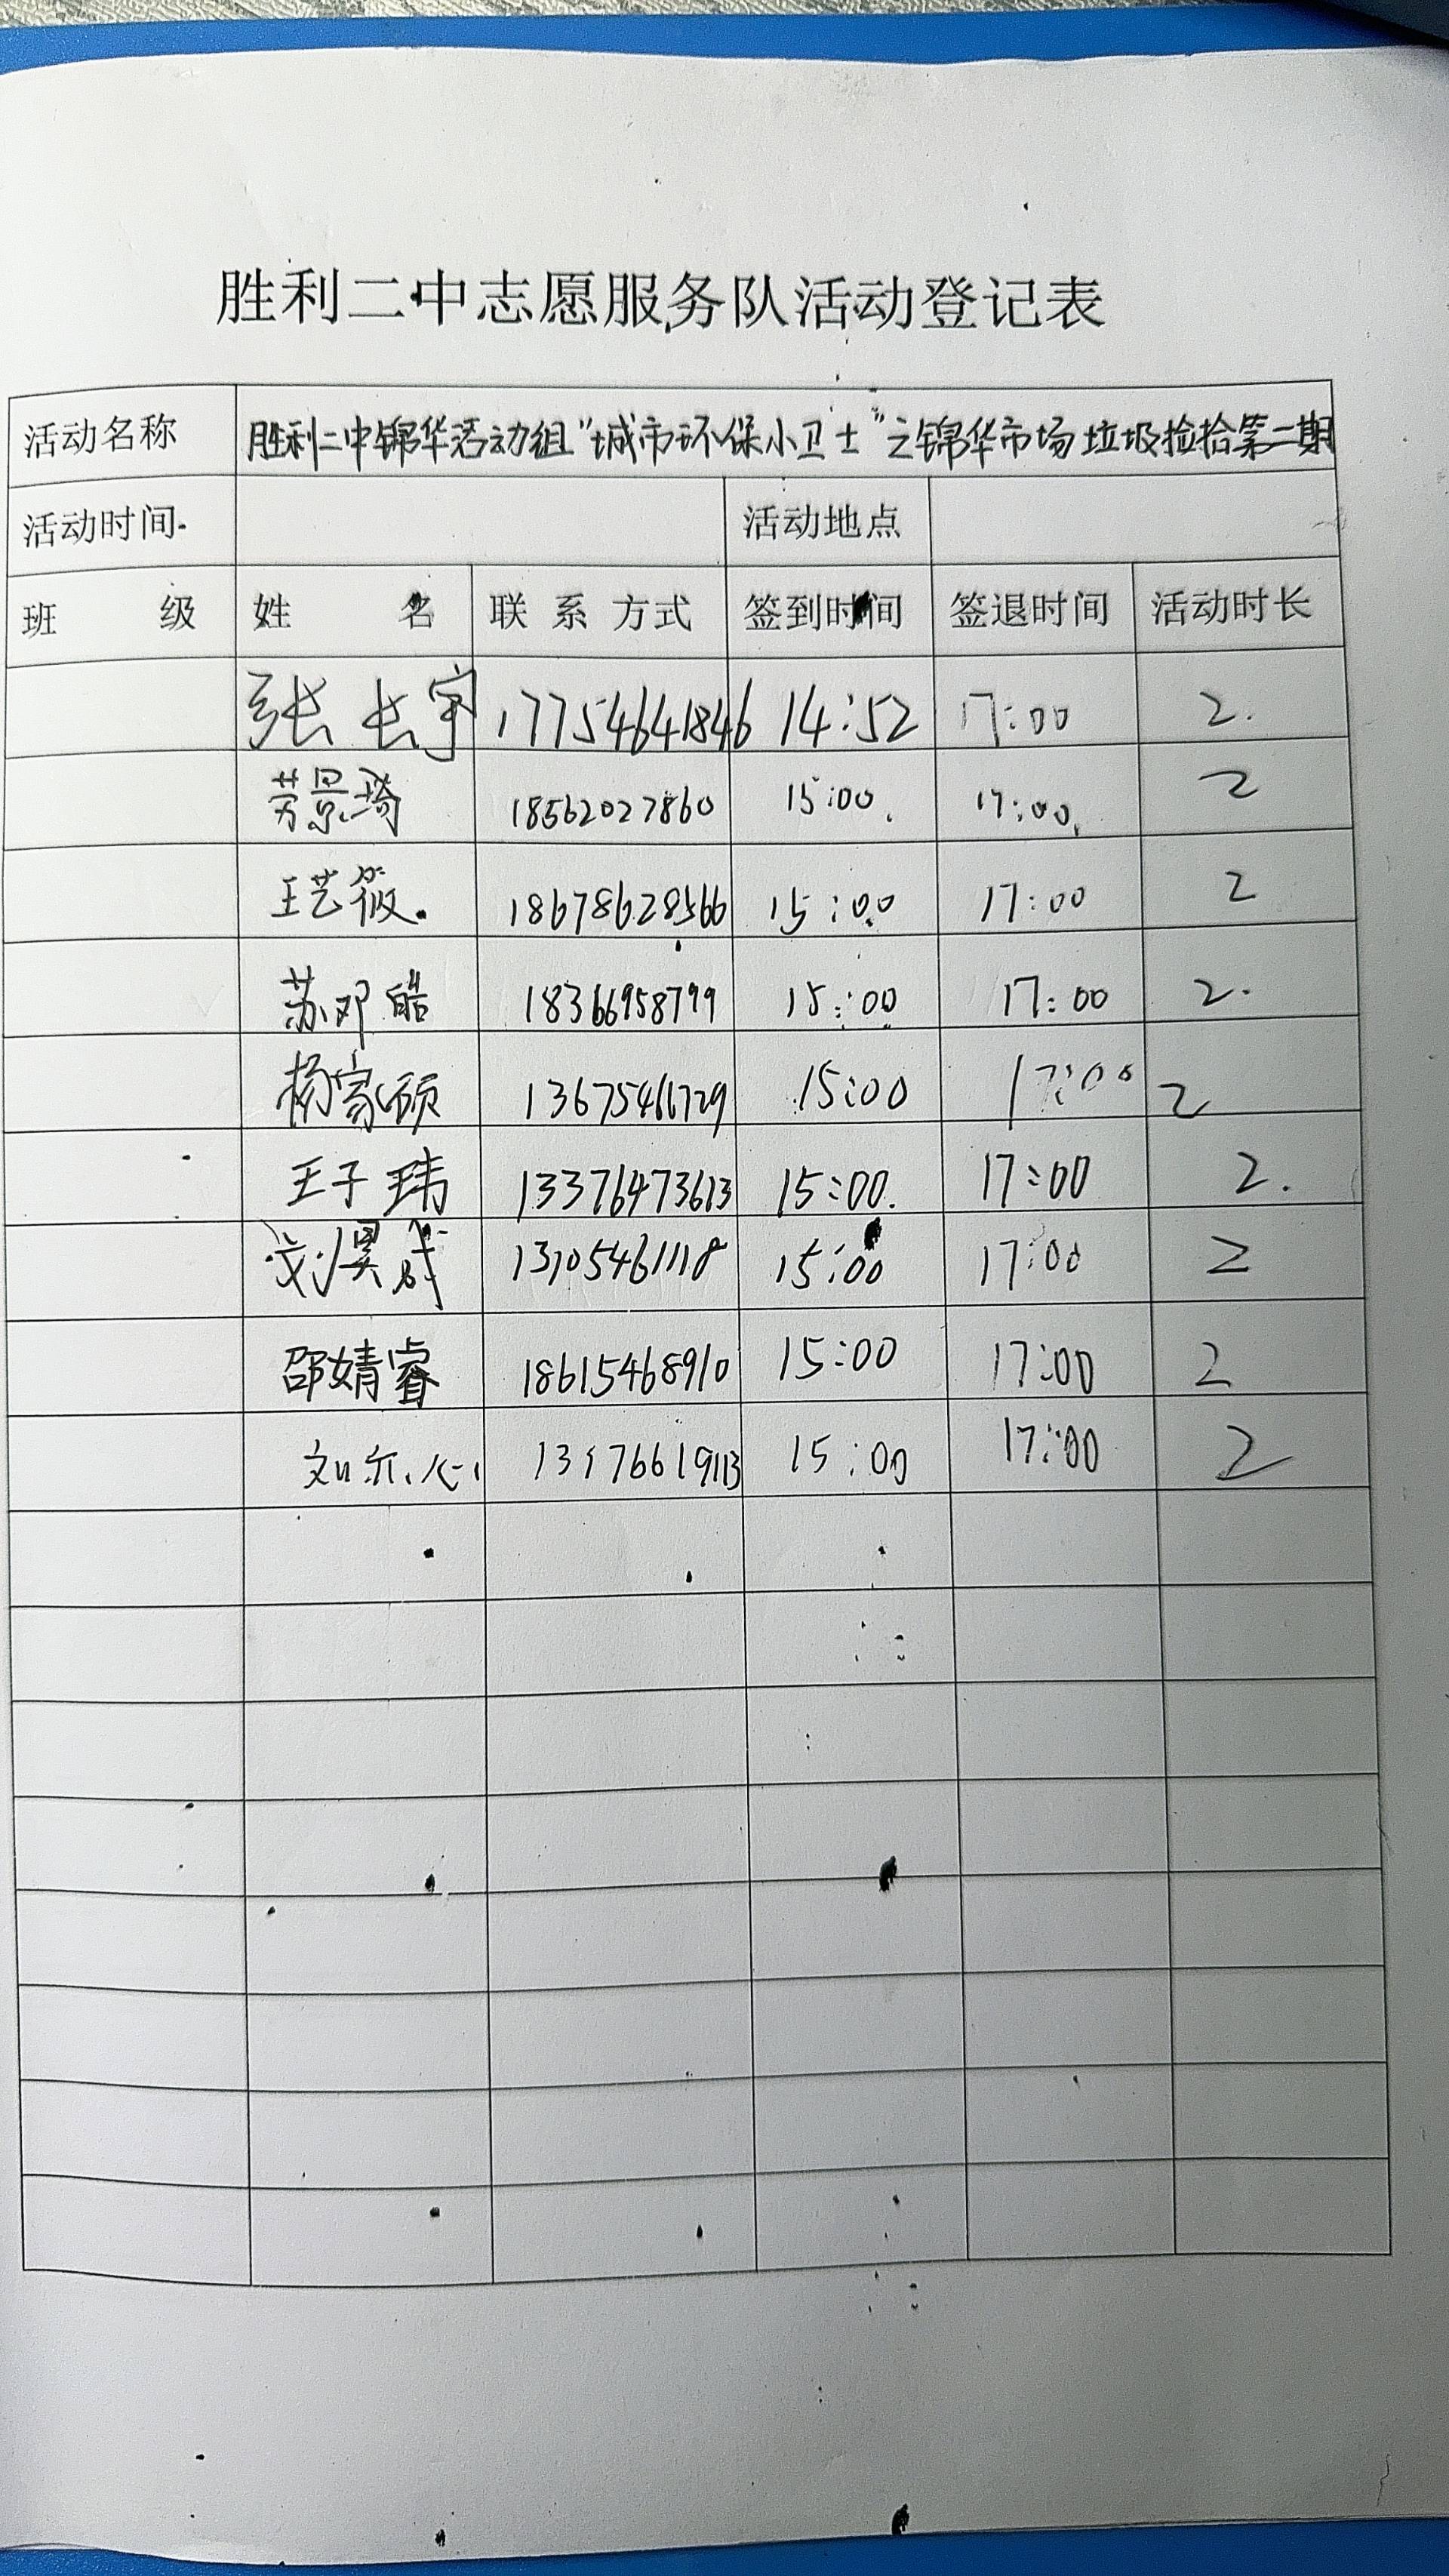 胜利二中志愿服务队活动登记表
活动名称 胜利二中锦华活动组“城市环保小卫士”之锦华市场垃圾捡拾第二期
活动时间 活动地点
班 级 姓 名 联系方式 签到时间 签退时间 活动时长
张长宇 17754641846 14:52 17:00 2.
劳景琦 18562027860 15:00. 17:00. 2
王艺筱. 18678628566 15:00 17:00 2
苏邓皓 18366958799 15:00 17:00 2.
杨家硕 13675466729 15:00 17:00 2
王子玮 13376473613 15:00. 17:00 2.
刘昊成 15:00 17:00 2
邵婧睿 18615468910 15:00 17:00 2
刘尔心 15:00 17:00 2